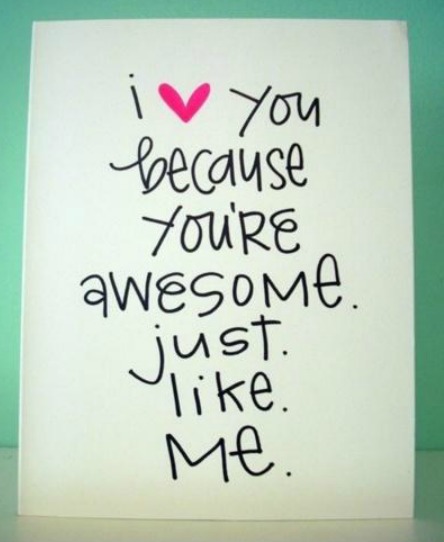 i ♥ you
because
you're
awesome.
just.
like.
me.